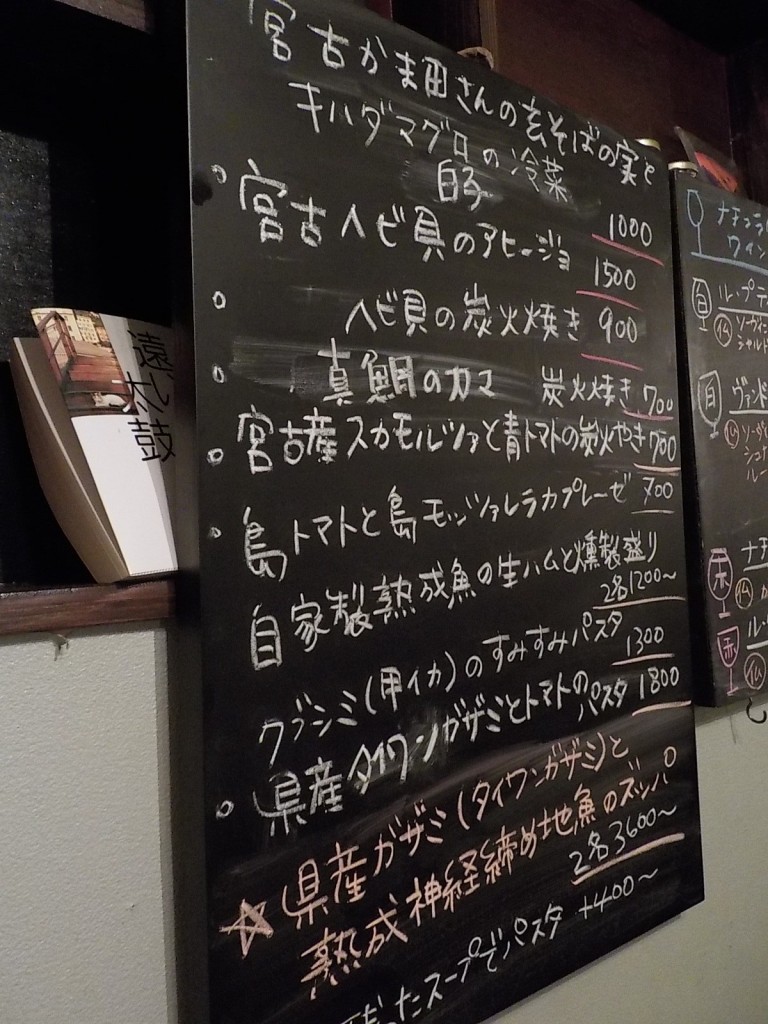 宮古かま田さんの玄そばの実と
キハダマグロの冷菜
白子
1000
宮古ヘビ貝のアヒージョ
1500
ヘビ貝の炭火焼き 900
真鯛のカマ 炭火焼き 700
宮古産スカモルツァと青トマトの炭火やき 700
島トマトと島モッツァレラカプレーゼ 700
自家製熟成魚の生ハムと燻製盛り
2名1200〜
クブシミ(甲イカ)のすみすみパスタ 1300
県産タイワンガザミとトマトのパスタ 1800
☆県産ガザミ(タイワンガザミ)と
熟成神経締め地魚のズッパ
2名3600〜
ったスープでパスタ +400〜
遠い太鼓
ナチュラ
ワイン
白
ル・プテ
仏
ソーヴィ
シャルド
白
ヴァンド
仏
赤
ナチ
仏
赤
ル・
仏